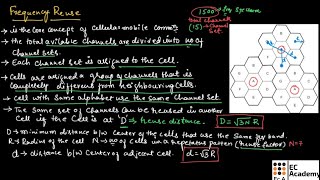 Frequency Reuse
→ is the core concept of Cellular mobile Commn.
→ the total available channels are divided into no of
channel sets.
→ Each channel set is assigned to the cell.
→ Cells are assigned a group of channels that is
completely different from neighbouring cells
→ Cell with same alphabet use the same channel set
→ The same set of channels can be reused in another
cell if the cell is at 'D' → reuse distance.
D → minimum distance b/w center of the cells that use the same
band.
D = √3N R
R → Radius of the cell N → no of cells in a repetitious pattern (reuse factor) N=7
d → distance b/w center of adjacent cell. d = √3 R
1500 → for system
total channels
(15) → channel set.
EC
Academy